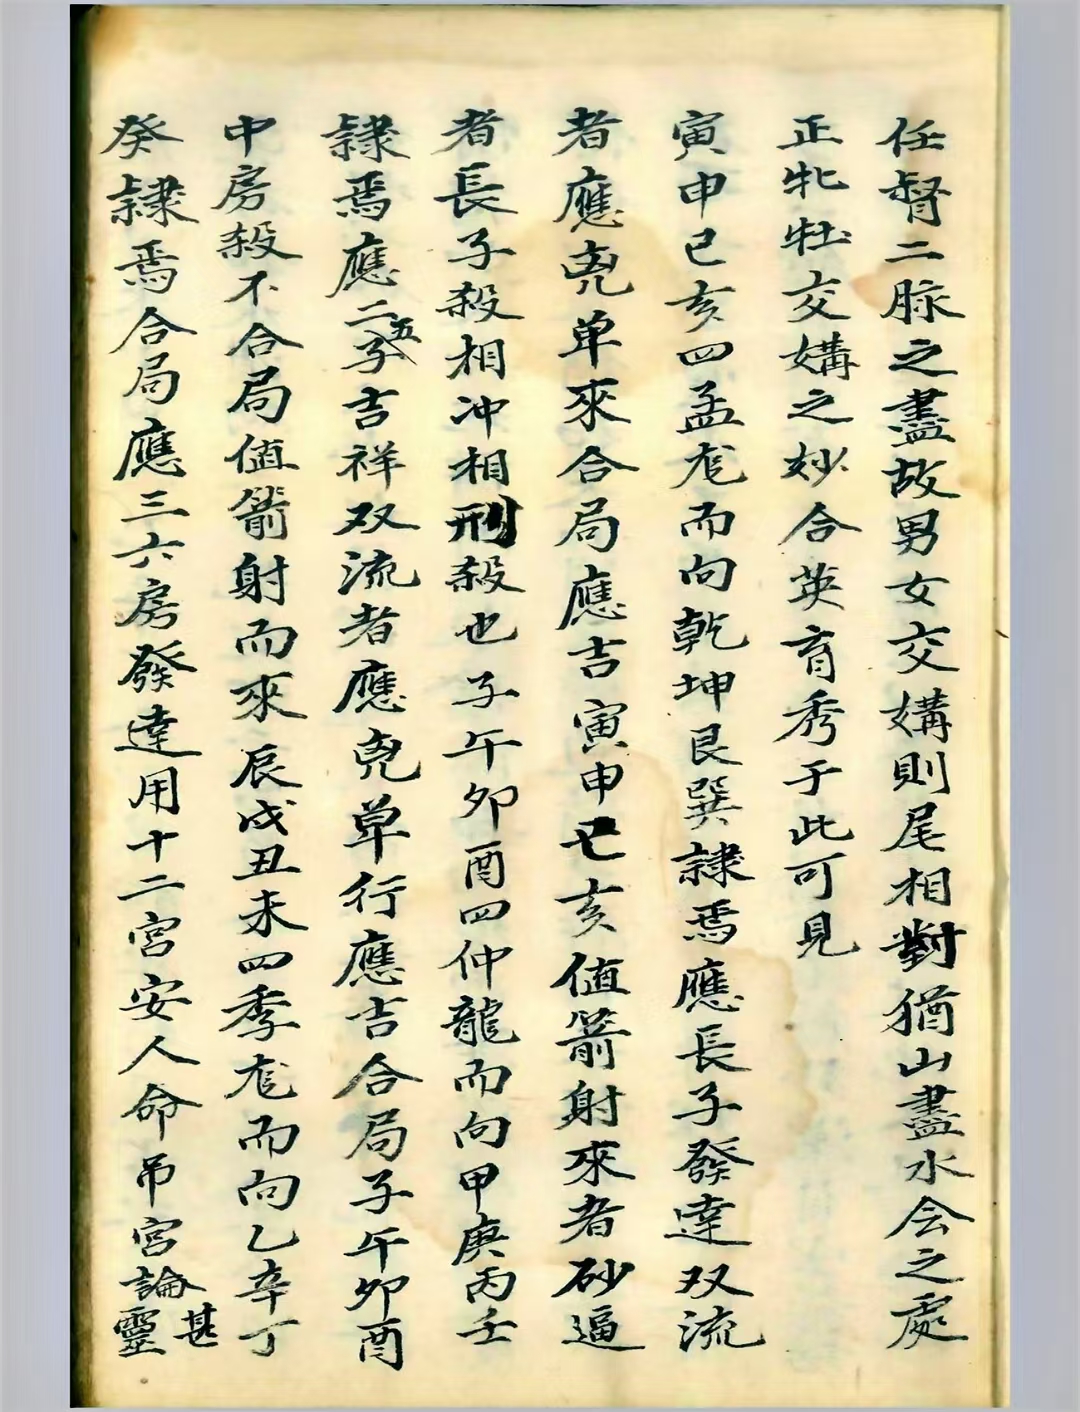 任督二脉之盡故男女交媾則尾相對猶山盡水会之處
正牝牡交媾之妙合英育秀于此可見
寅申巳亥四孟尨而向乾坤艮巽隷焉應長子發達双流
者應兇单來合局應吉寅申巳亥值箭射來者砂逼
者長子殺相冲相刑殺也子午卯酉四仲龍而向甲庚丙壬
隷焉應二五子吉祥双流者應兇单行應吉合局子午卯酉
中房殺不合局值箭射而來辰戌丑未四季尨而向乙辛丁
癸隷焉合局應三六房發達用十二宮安人命吊宮論甚靈